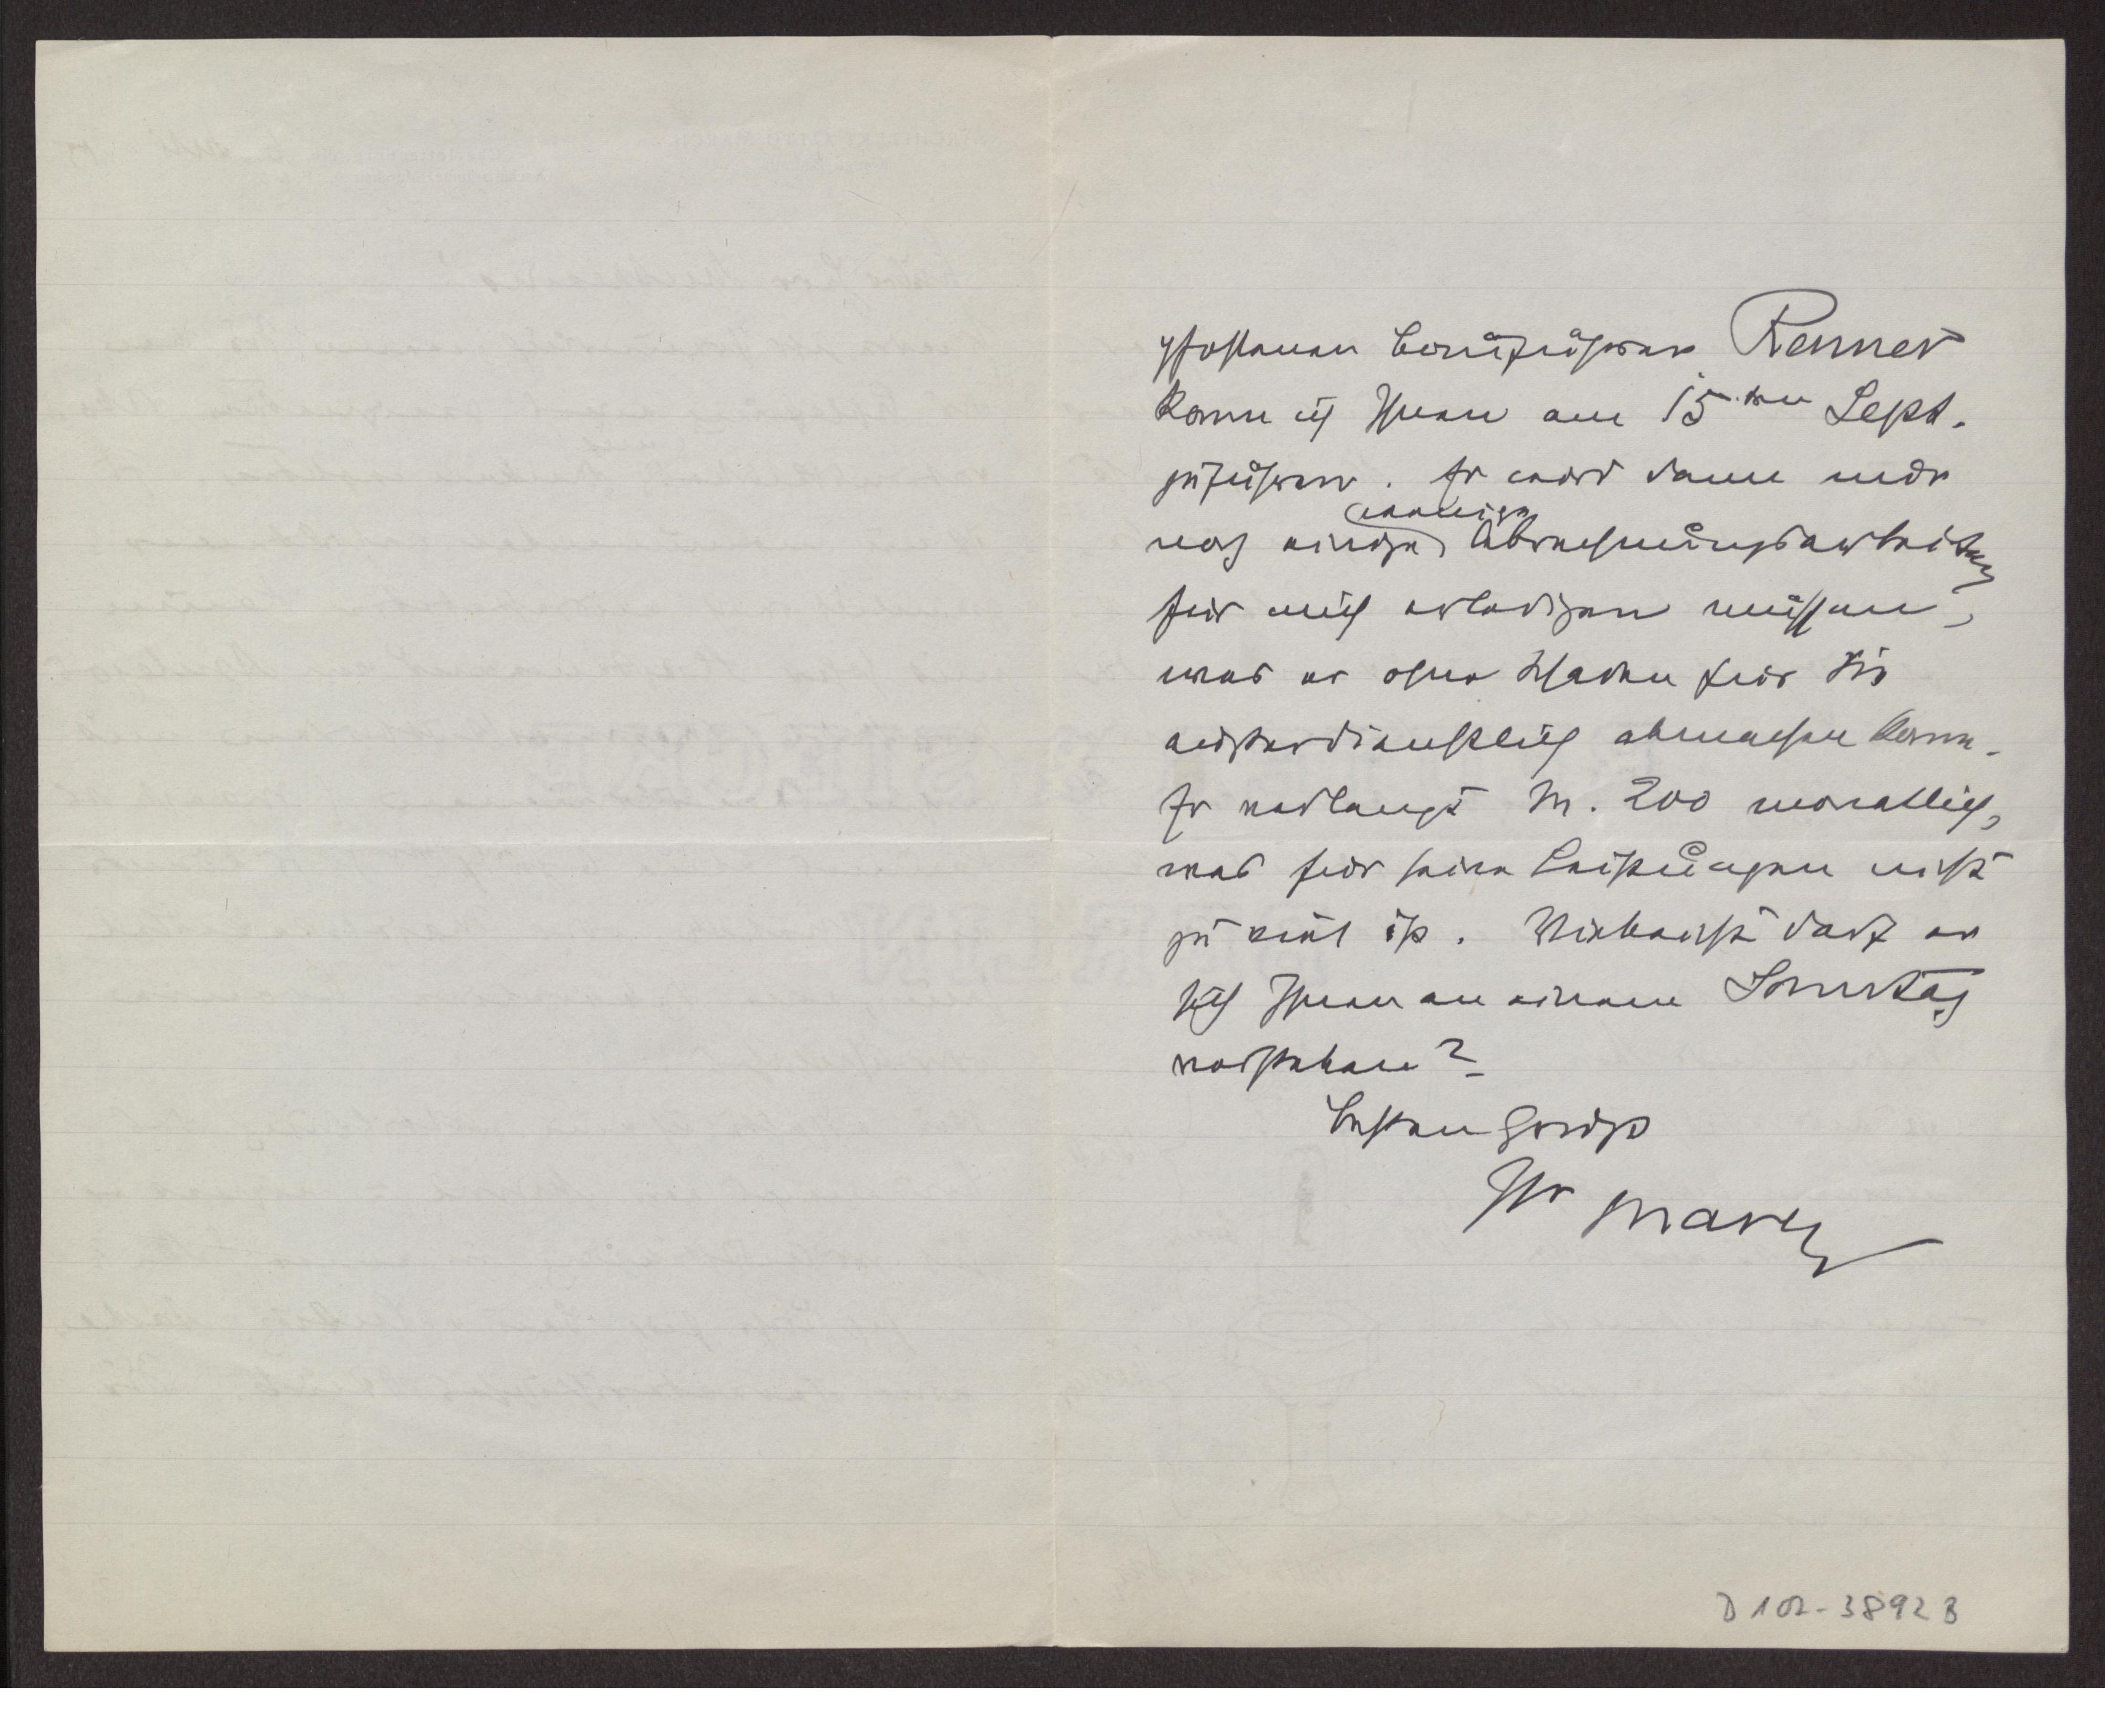 Bauführer Renner
kann ich Ihnen am 15ten Sept.
zuführen. Er wird dann nur
noch einige wenige Abrechnungsarbeiten
für mich erledigen müssen,
was er ohne Schaden für Sie
außerdienstlich abmachen kann.
Er verlangt M. 200 monatlich,
was für seine Leistungen nicht
zu viel ist. Vielleicht darf er
sich Ihnen an einem Sonntag
vorstellen?
Besten Gruß
Ihr March
D 102-3892 B